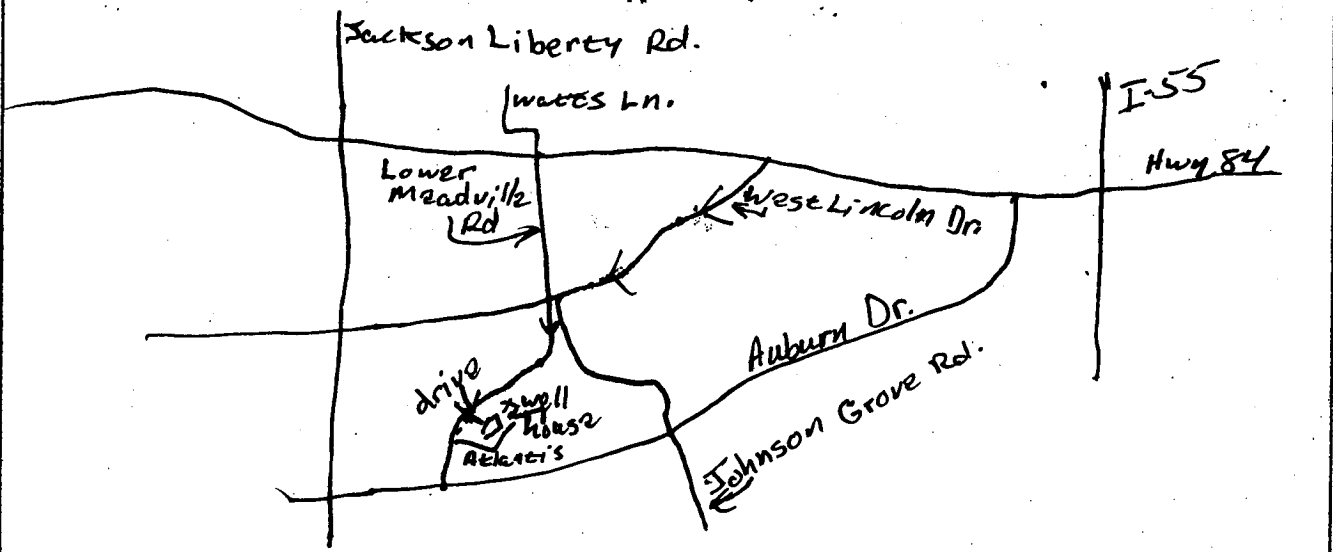 Jackson Liberty Rd.
Watts Ln.
I-55
Hwy 84
Lower
Meadville
Rd
West Lincoln Dr.
Auburn Dr.
Johnson Grove Rd.
drive
well
house
Atlantis